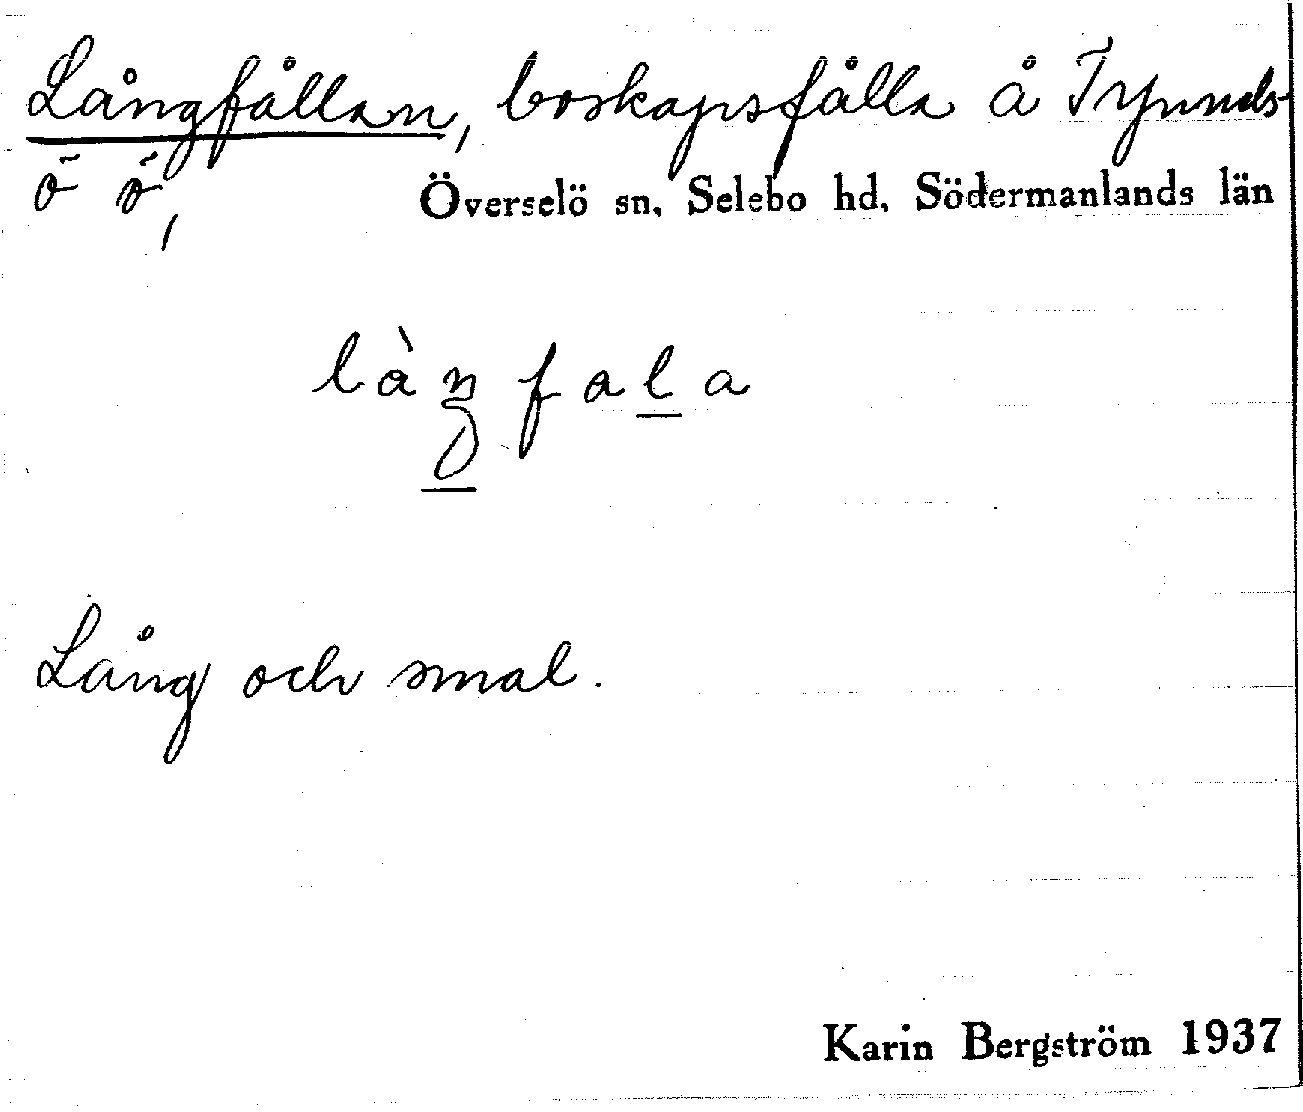 Långfållan, boskapsfålla å Tynnels-
ö ö,
Överselö sn, Selebo hd, Södermanlands län
làŋfala
Lång och smal.
Karin Bergström 1937